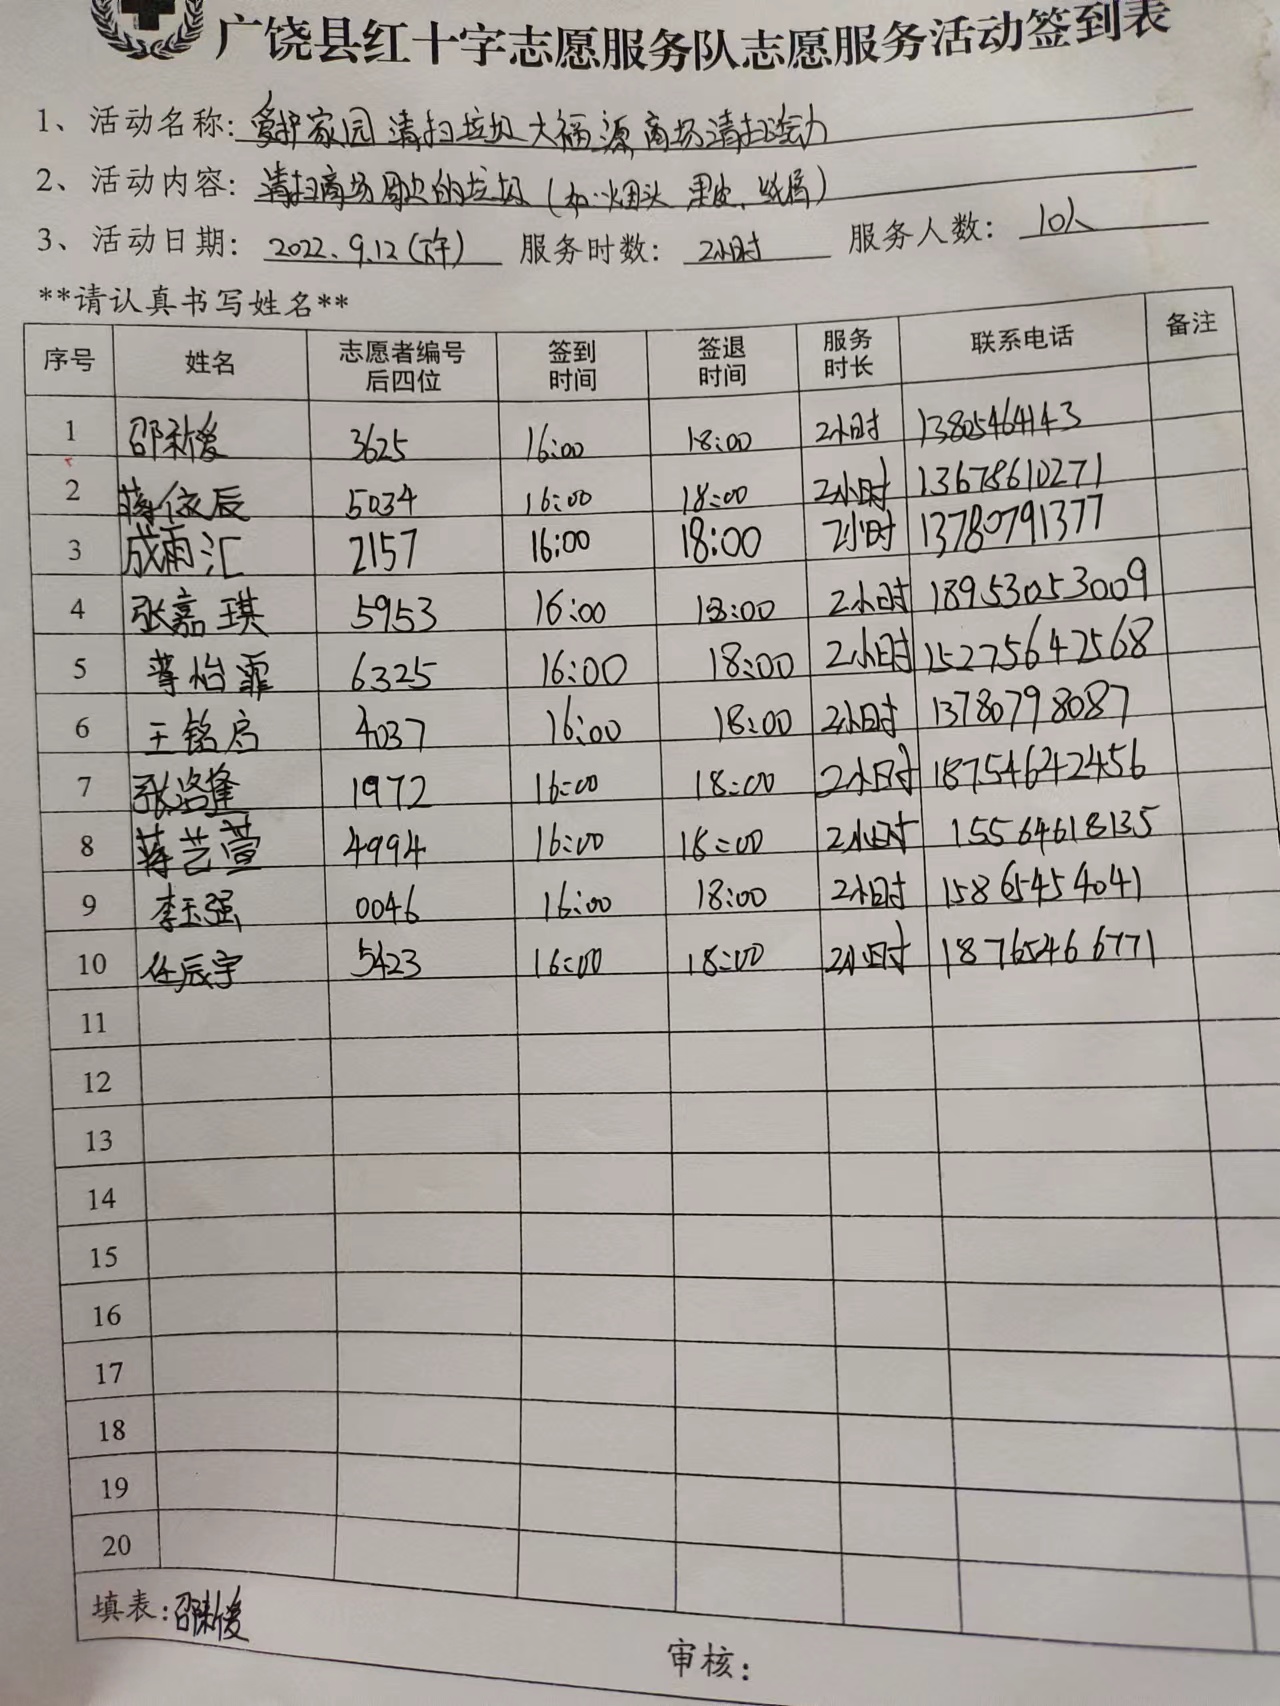 广饶县红十字志愿服务队志愿服务活动签到表
1、活动名称: 爱护家园 清扫垃圾 大福源商场清扫活动
2、活动内容: 清扫商场周边的垃圾(如:烟头 果皮、纸屑)
3、活动日期: 2022.9.12(下午) 服务时数: 2小时 服务人数: 10人
**请认真书写姓名**
序号 姓名 志愿者编号后四位 签到时间 签退时间 服务时长 联系电话 备注
1 邵新俊 3625 16:00 18:00 2小时 13805464143
2 蒋依辰 5034 16:00 18:00 2小时 13678610271
3 成雨汇 2157 16:00 18:00 2小时 13780791377
4 张嘉琪 5953 16:00 18:00 2小时 18953053009
5 怡霏 6325 16:00 18:00 2小时 15275642568
6 王铭启 4037 16:00 18:00 2小时 13780798087
7 张洛逢 1972 16:00 18:00 2小时 18754642456
8 蒋艺萱 4994 16:00 18:00 2小时 15564618135
9 李玉强 0046 16:00 18:00 2小时 15865454041
10 任辰宇 5423 16:00 18:00 2小时 18765466771
11
12
13
14
15
16
17
18
19
20
填表:邵新俊
审核: